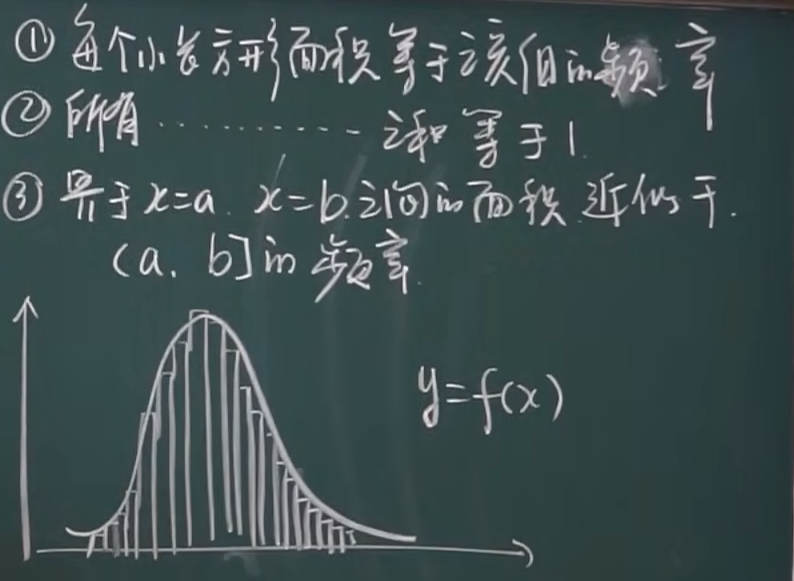 ① 每个小长方形面积等于该组的频率
② 所有 ············ 之和等于1.
③ 界于x=a. x=b.之间的面积近似于.
(a, b]的频率.
y=f(x)